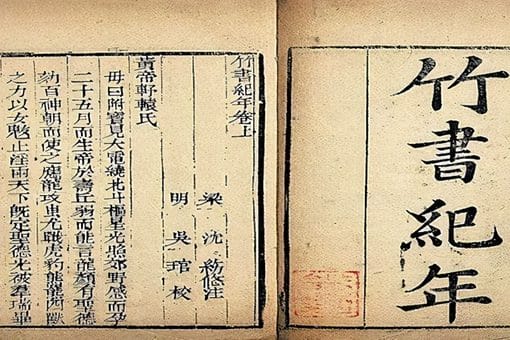 竹書紀年
竹書紀年卷上
梁 沈約注
明 吳琯校
黃帝軒轅氏
母曰附寶見大電繞北斗樞星光照郊野感而孕
二十五月而生帝於壽丘弱而能言龍顏有聖德
劾百神朝而使之應龍攻蚩尤戰虎豹熊羆四獸
之力以女魃止淫雨天下既定聖德光被羣瑞畢